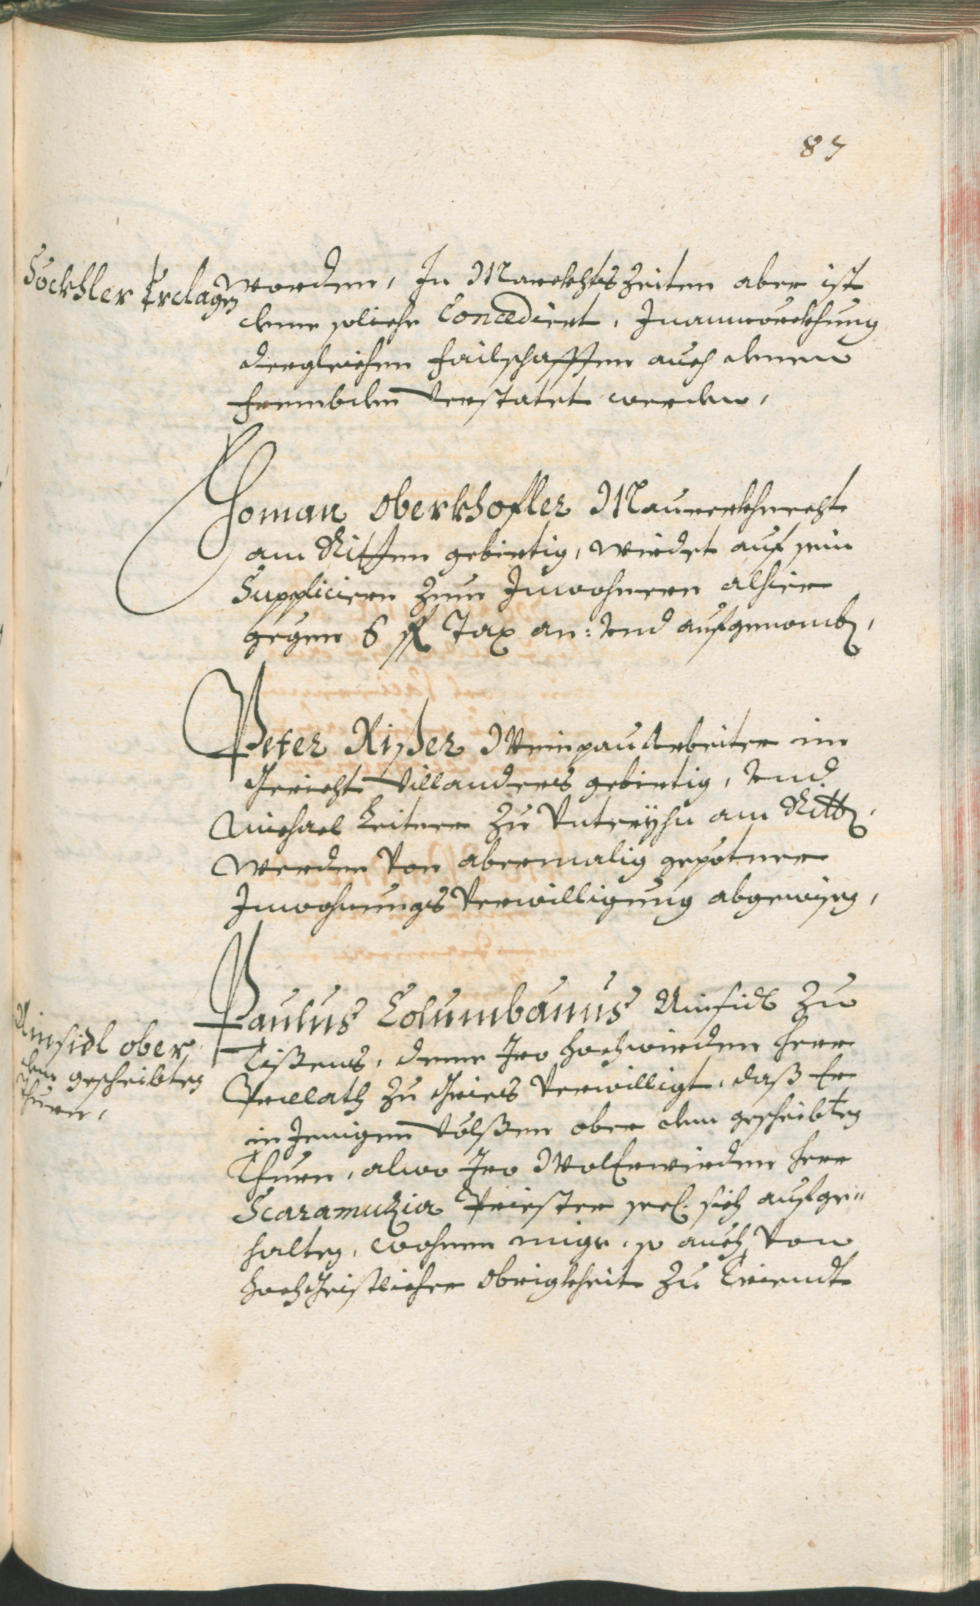 87
Söckhler Erclagen
worden, In Marckhtszeiten aber ist
deme soliche Concediert, In anmerckhung
dergleichen failschafften auch denen
frembden verstatet werden,
Toman Oberkhofler Maurerkhnecht
am Ritten gebirtig, wirdet auf sein
Suppliciern zum Inwohnern alhier
gegen 6 fl Tax an: vnd aufgenomben,
Peter Rißer Weinpau Arbeiter im
Gericht Villanders gebirtig, vnd
Michael Leitner zu Unteryhn am Ritten.
werden von abermalig gepotner
Inwohnungs verwilligung abgewisen,
Ainsidl ober
dem gescheibten
Thurn,
Paulus Columbanus Ainsidl zu
Tißens, deme Iro hochwirden Herr
Praelath zu Gries verwilligt, daß Er
in Jenigen Vólßen ober dem gescheibten
Thurn, alwo Iro WolErwirden Herr
Scaramuzia Priester seel. sich aufge-
halten, wohnen mige, so auch von
hochGeistlicher Obrigkheit zu Triendt